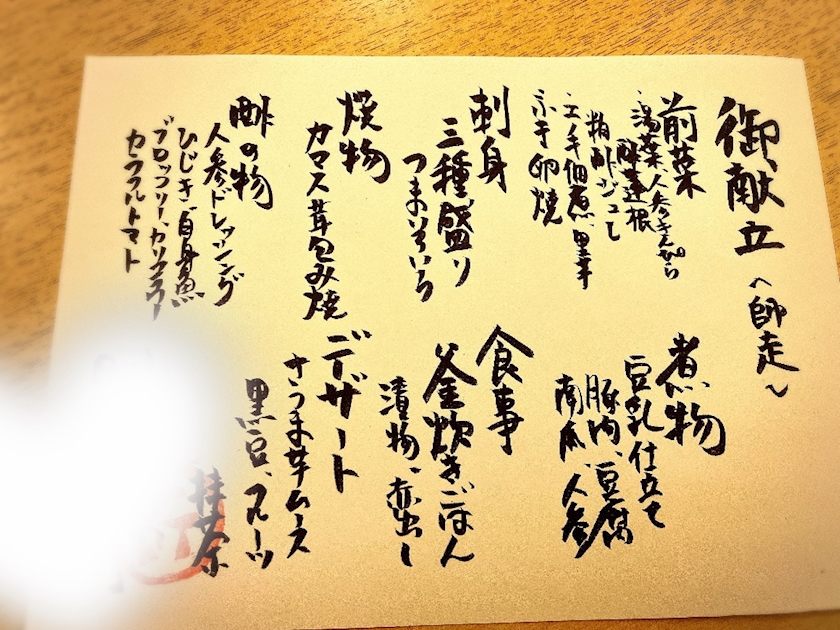 御献立 〜師走〜
前菜
湯葉、人参きんぴら
酢蓮根
粕酢ジュレ
エノキ佃煮、里芋
ふき卵焼
刺身
三種盛り
つまいろいろ
焼物
カマス茸包み焼
酢の物
人参ドレッシング
ひじき、白身魚
ブロッコリー、カリフラワー
カラフルトマト
煮物
豆乳仕立て
豚肉、豆腐
南瓜、人参
食事
釜炊きごはん
漬物、赤出し
デザート
さつま芋ムース
黒豆、フルーツ
抹茶